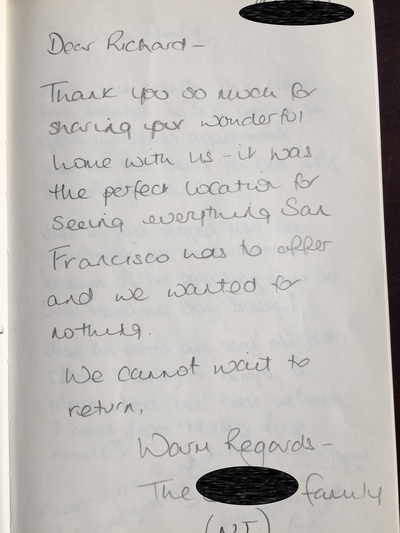 Dear Richard -
Thank you so much for
sharing your wonderful
home with us - it was
the perfect location for
seeing everything San
Francisco has to offer
and we wanted for
nothing.
We cannot wait to
return.
Warm Regards -
The family
(NJ)